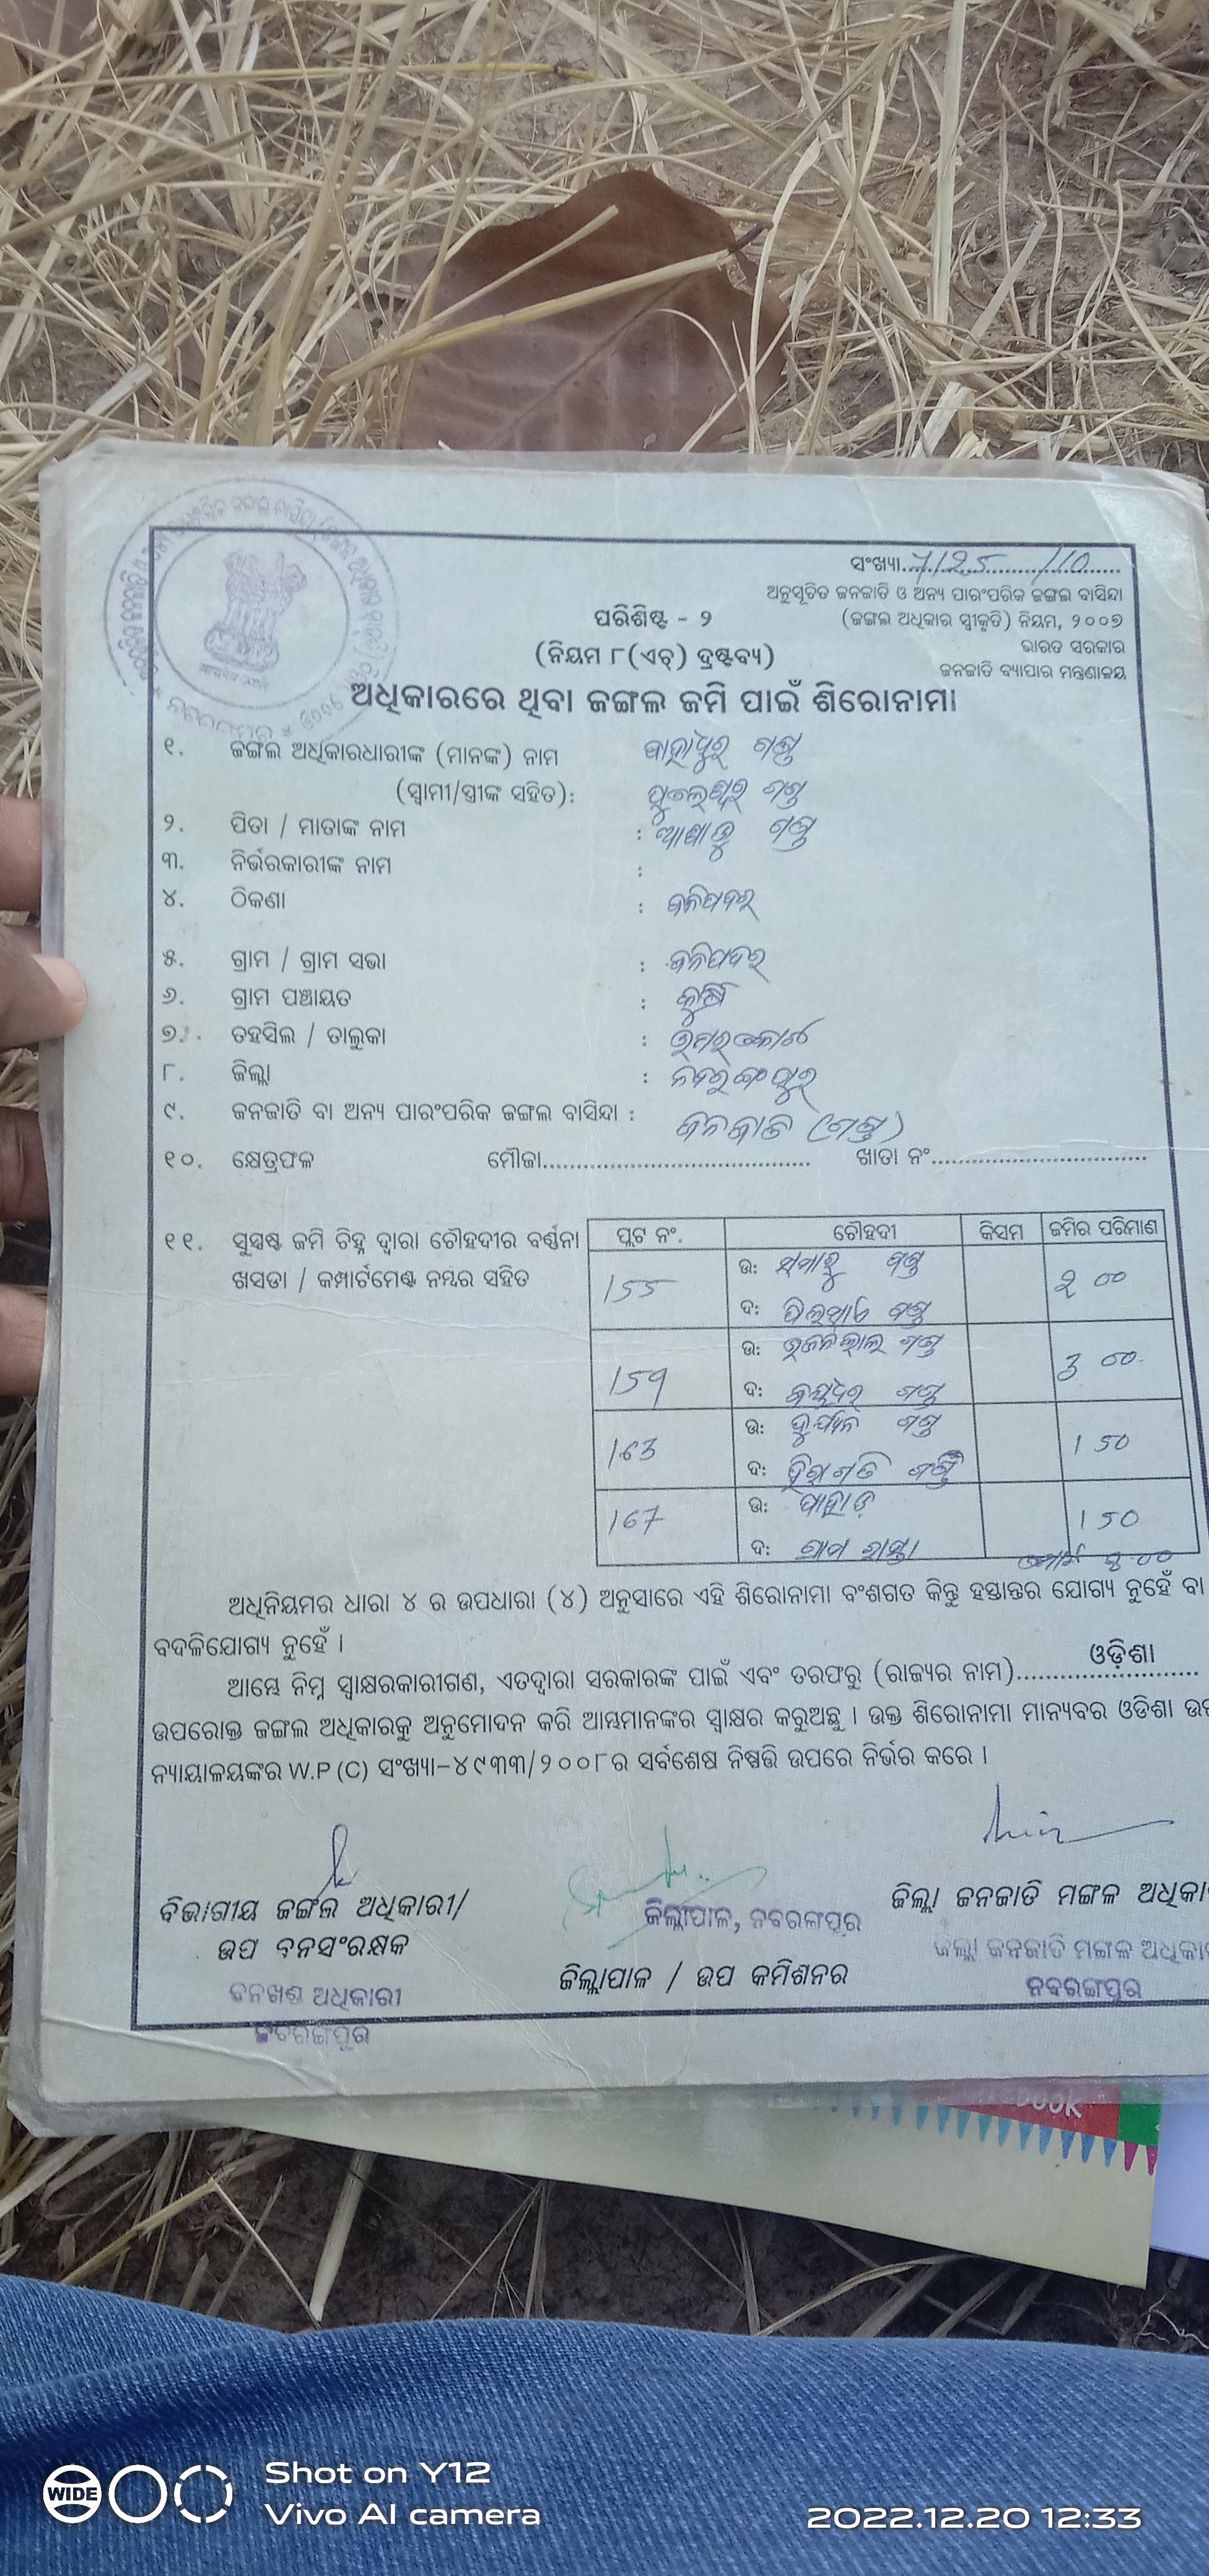 ସଂଖ୍ୟା..7125....../10......
ଅନୁସୂଚିତ ଜନଜାତି ଓ ଅନ୍ୟ ପାରଂପରିକ ଜଙ୍ଗଲ ବାସିନ୍ଦା
(ଜଙ୍ଗଲ ଅଧିକାର ସ୍ୱୀକୃତି) ନିୟମ, ୨୦୦୭
ଭାରତ ସରକାର
ଜନଜାତି ବ୍ୟାପାର ମନ୍ତ୍ରଣାଳୟ
ପରିଶିଷ୍ଟ - ୨
(ନିୟମ ୮(ଏଚ୍) ଦ୍ରଷ୍ଟବ୍ୟ)
ଅଧିକାରରେ ଥିବା ଜଙ୍ଗଲ ଜମି ପାଇଁ ଶିରୋନାମା
୧. ଜଙ୍ଗଲ ଅଧିକାରଧାରୀଙ୍କ (ମାନଙ୍କ) ନାମ ବାହାଧୁର୍ ଗଣ୍ଡ
(ସ୍ୱାମୀ/ସ୍ତ୍ରୀଙ୍କ ସହିତ): ଗଣ୍ଡ
୨. ପିତା / ମାତାଙ୍କ ନାମ : ଗଣ୍ଡ
୩. ନିର୍ଭରକାରୀଙ୍କ ନାମ :
୪. ଠିକଣା : ଜଳିପଦର୍
୫. ଗ୍ରାମ / ଗ୍ରାମ ସଭା : ଜଳିପଦର୍
୬. ଗ୍ରାମ ପଞ୍ଚାୟତ :
୭. ତହସିଲ / ତାଲୁକା : ଉମର୍‌କୋଟ
୮. ଜିଲ୍ଲା : ନବରଙ୍ଗପୁର୍
୯. ଜନଜାତି ବା ଅନ୍ୟ ପାରଂପରିକ ଜଙ୍ଗଲ ବାସିନ୍ଦା : ଜନଜାତି (ଗଣ୍ଡ)
୧୦. କ୍ଷେତ୍ରଫଳ ମୌଜା........................ ଖାତା ନଂ........................
୧୧. ସୁସ୍ପଷ୍ଟ ଜମି ଚିହ୍ନ ଦ୍ୱାରା ଚୌହଦୀର ବର୍ଣ୍ଣନା
ଖସଡା / କମ୍ପାର୍ଟମେଣ୍ଟ ନମ୍ବର ସହିତ
ପ୍ଲଟ ନଂ. ଚୌହଦୀ କିସମ ଜମିର ପରିମାଣ
155 ଉ: ଗଣ୍ଡ 2 00
ଦ: ଗଣ୍ଡ
159 ଉ: ଗଣ୍ଡ 3 00
ଦ: ଜୟଧର୍ ଗଣ୍ଡ
163 ଉ: ଗଣ୍ଡ 1 50
ଦ: ଗଣ୍ଡ
167 ଉ: ପାହାଡ଼ 1 50
ଦ: ଗ୍ରାମ ରାସ୍ତା
ମୋଟ 8.00
ଅଧିନିୟମର ଧାରା ୪ ର ଉପଧାରା (୪) ଅନୁସାରେ ଏହି ଶିରୋନାମା ବଂଶଗତ କିନ୍ତୁ ହସ୍ତାନ୍ତର ଯୋଗ୍ୟ ନୁହେଁ ବା
ବଦଳିଯୋଗ୍ୟ ନୁହେଁ ।
ଆମ୍ଭେ ନିମ୍ନ ସ୍ୱାକ୍ଷରକାରୀଗଣ, ଏତଦ୍ୱାରା ସରକାରଙ୍କ ପାଇଁ ଏବଂ ତରଫରୁ (ରାଜ୍ୟର ନାମ)......ଓଡ଼ିଶା......
ଉପରୋକ୍ତ ଜଙ୍ଗଲ ଅଧିକାରକୁ ଅନୁମୋଦନ କରି ଆମ୍ଭମାନଙ୍କର ସ୍ୱାକ୍ଷର କରୁଅଛୁ । ଉକ୍ତ ଶିରୋନାମା ମାନ୍ୟବର ଓଡିଶା
ନ୍ୟାୟାଳୟଙ୍କର W.P (C) ସଂଖ୍ୟା-୪୯୩୩/୨୦୦୮ର ସର୍ବଶେଷ ନିଷ୍ପତ୍ତି ଉପରେ ନିର୍ଭର କରେ ।
ବିଭାଗୀୟ ଜଙ୍ଗଲ ଅଧିକାରୀ/
ଉପ ବନସଂରକ୍ଷକ
ବନଖଣ୍ଡ ଅଧିକାରୀ
ନବରଙ୍ଗପୁର
ଜିଲ୍ଲାପାଳ, ନବରଙ୍ଗପୁର
ଜିଲ୍ଲାପାଳ / ଉପ କମିଶନର
ଜିଲ୍ଲା ଜନଜାତି ମଙ୍ଗଳ
ଜିଲ୍ଲା ଜନଜାତି ମଙ୍ଗଳ
ନବରଙ୍ଗପୁର
WIDE
Shot on Y12
Vivo AI camera
2022.12.20 12:33